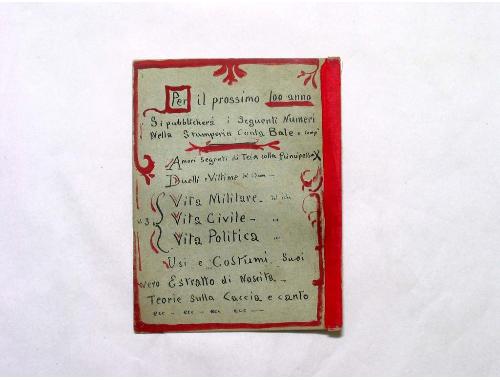 Per il prossimo 100 anno
Si pubblicherà i Seguenti Numeri
Nella Stamperia Conta Bale e comp.
Amori Segreti di Teia colla Principessa X
Duelli e Vittime
Vita Militare
Vita Civile
Vita Politica
Usi e Costumi Suoi
vero Estratto di Nascita
Teorie sulla Caccia e canto
ecc - ecc - ecc ecc